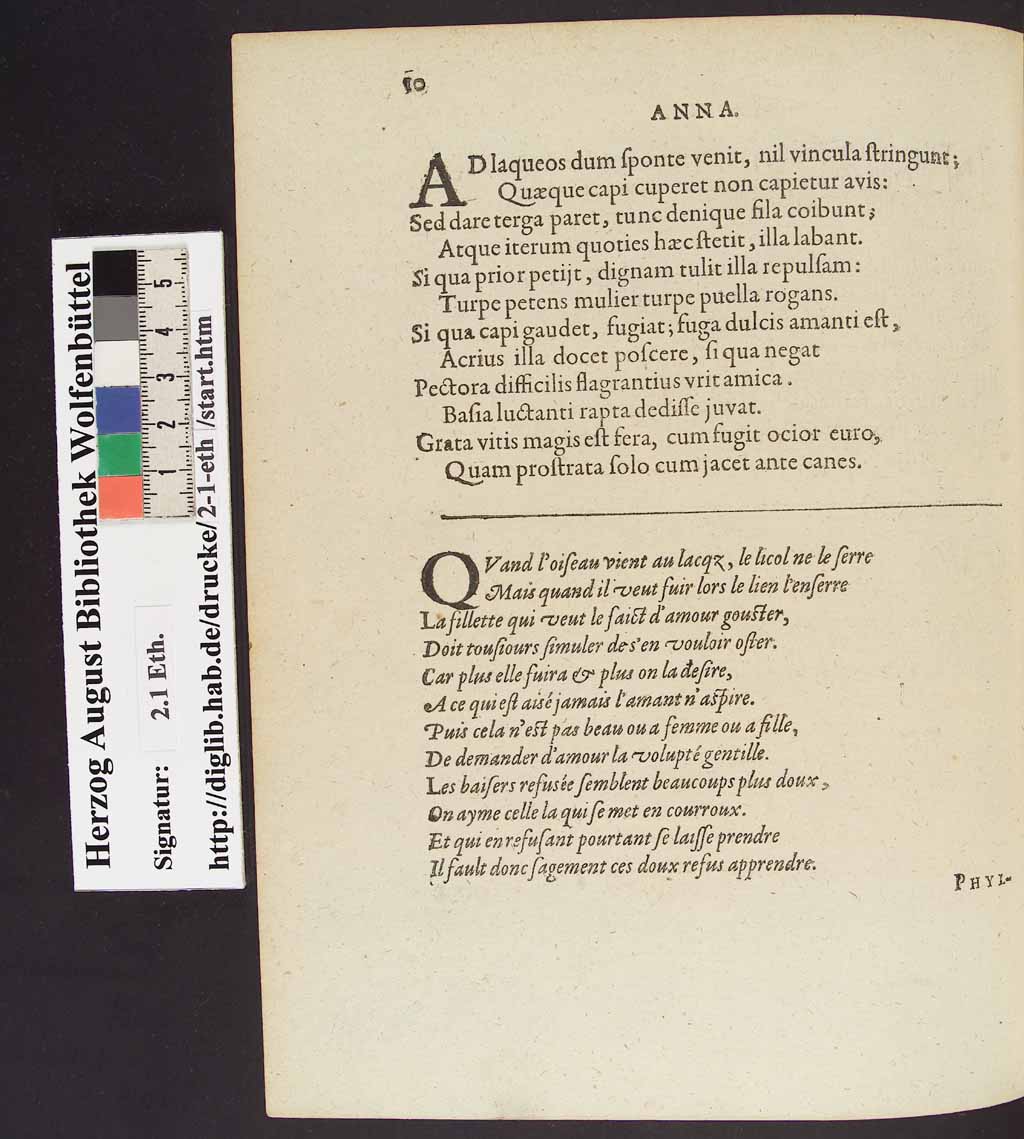 Herzog August Bibliothek Wolfenbüttel
Signatur: 2.1 Eth.
http://diglib.hab.de/drucke/2-1-eth/start.htm
1 2 3 4 5
10
ANNA.
AD laqueos dum ſponte venit, nil vincula ſtringunt;
Quæque capi cuperet non capietur avis:
Sed dare terga paret, tunc denique fila coibunt;
Atque iterum quoties hæc ſtetit, illa labant.
Si qua prior petijt, dignam tulit illa repulſam:
Turpe petens mulier turpe puella rogans.
Si qua capi gaudet, fugiat; fuga dulcis amanti eſt,
Acrius illa docet poſcere, ſi qua negat
Pectora difficilis flagrantius vrit amica.
Baſia luctanti rapta dediſſe juvat.
Grata vitis magis eſt fera, cum fugit ocior euro,
Quam proſtrata ſolo cum jacet ante canes.
QVand l'oiſeau vient au lacqz, le licol ne le ſerre
Mais quand il veut fuir lors le lien l'enſerre
La fillette qui veut le faict d'amour gouſter,
Doit touſiours ſimuler de s'en vouloir oſter.
Car plus elle fuira & plus on la deſire,
A ce qui eſt aisé jamais l'amant n'aſpire.
Puis cela n'eſt pas beau ou a femme ou a fille,
De demander d'amour la volupté gentille.
Les baiſers refusée ſemblent beaucoups plus doux,
On ayme celle la qui ſe met en courroux.
Et qui en refuſant pourtant ſe laiſſe prendre
Il fault donc ſagement ces doux refus apprendre.
PHYL-